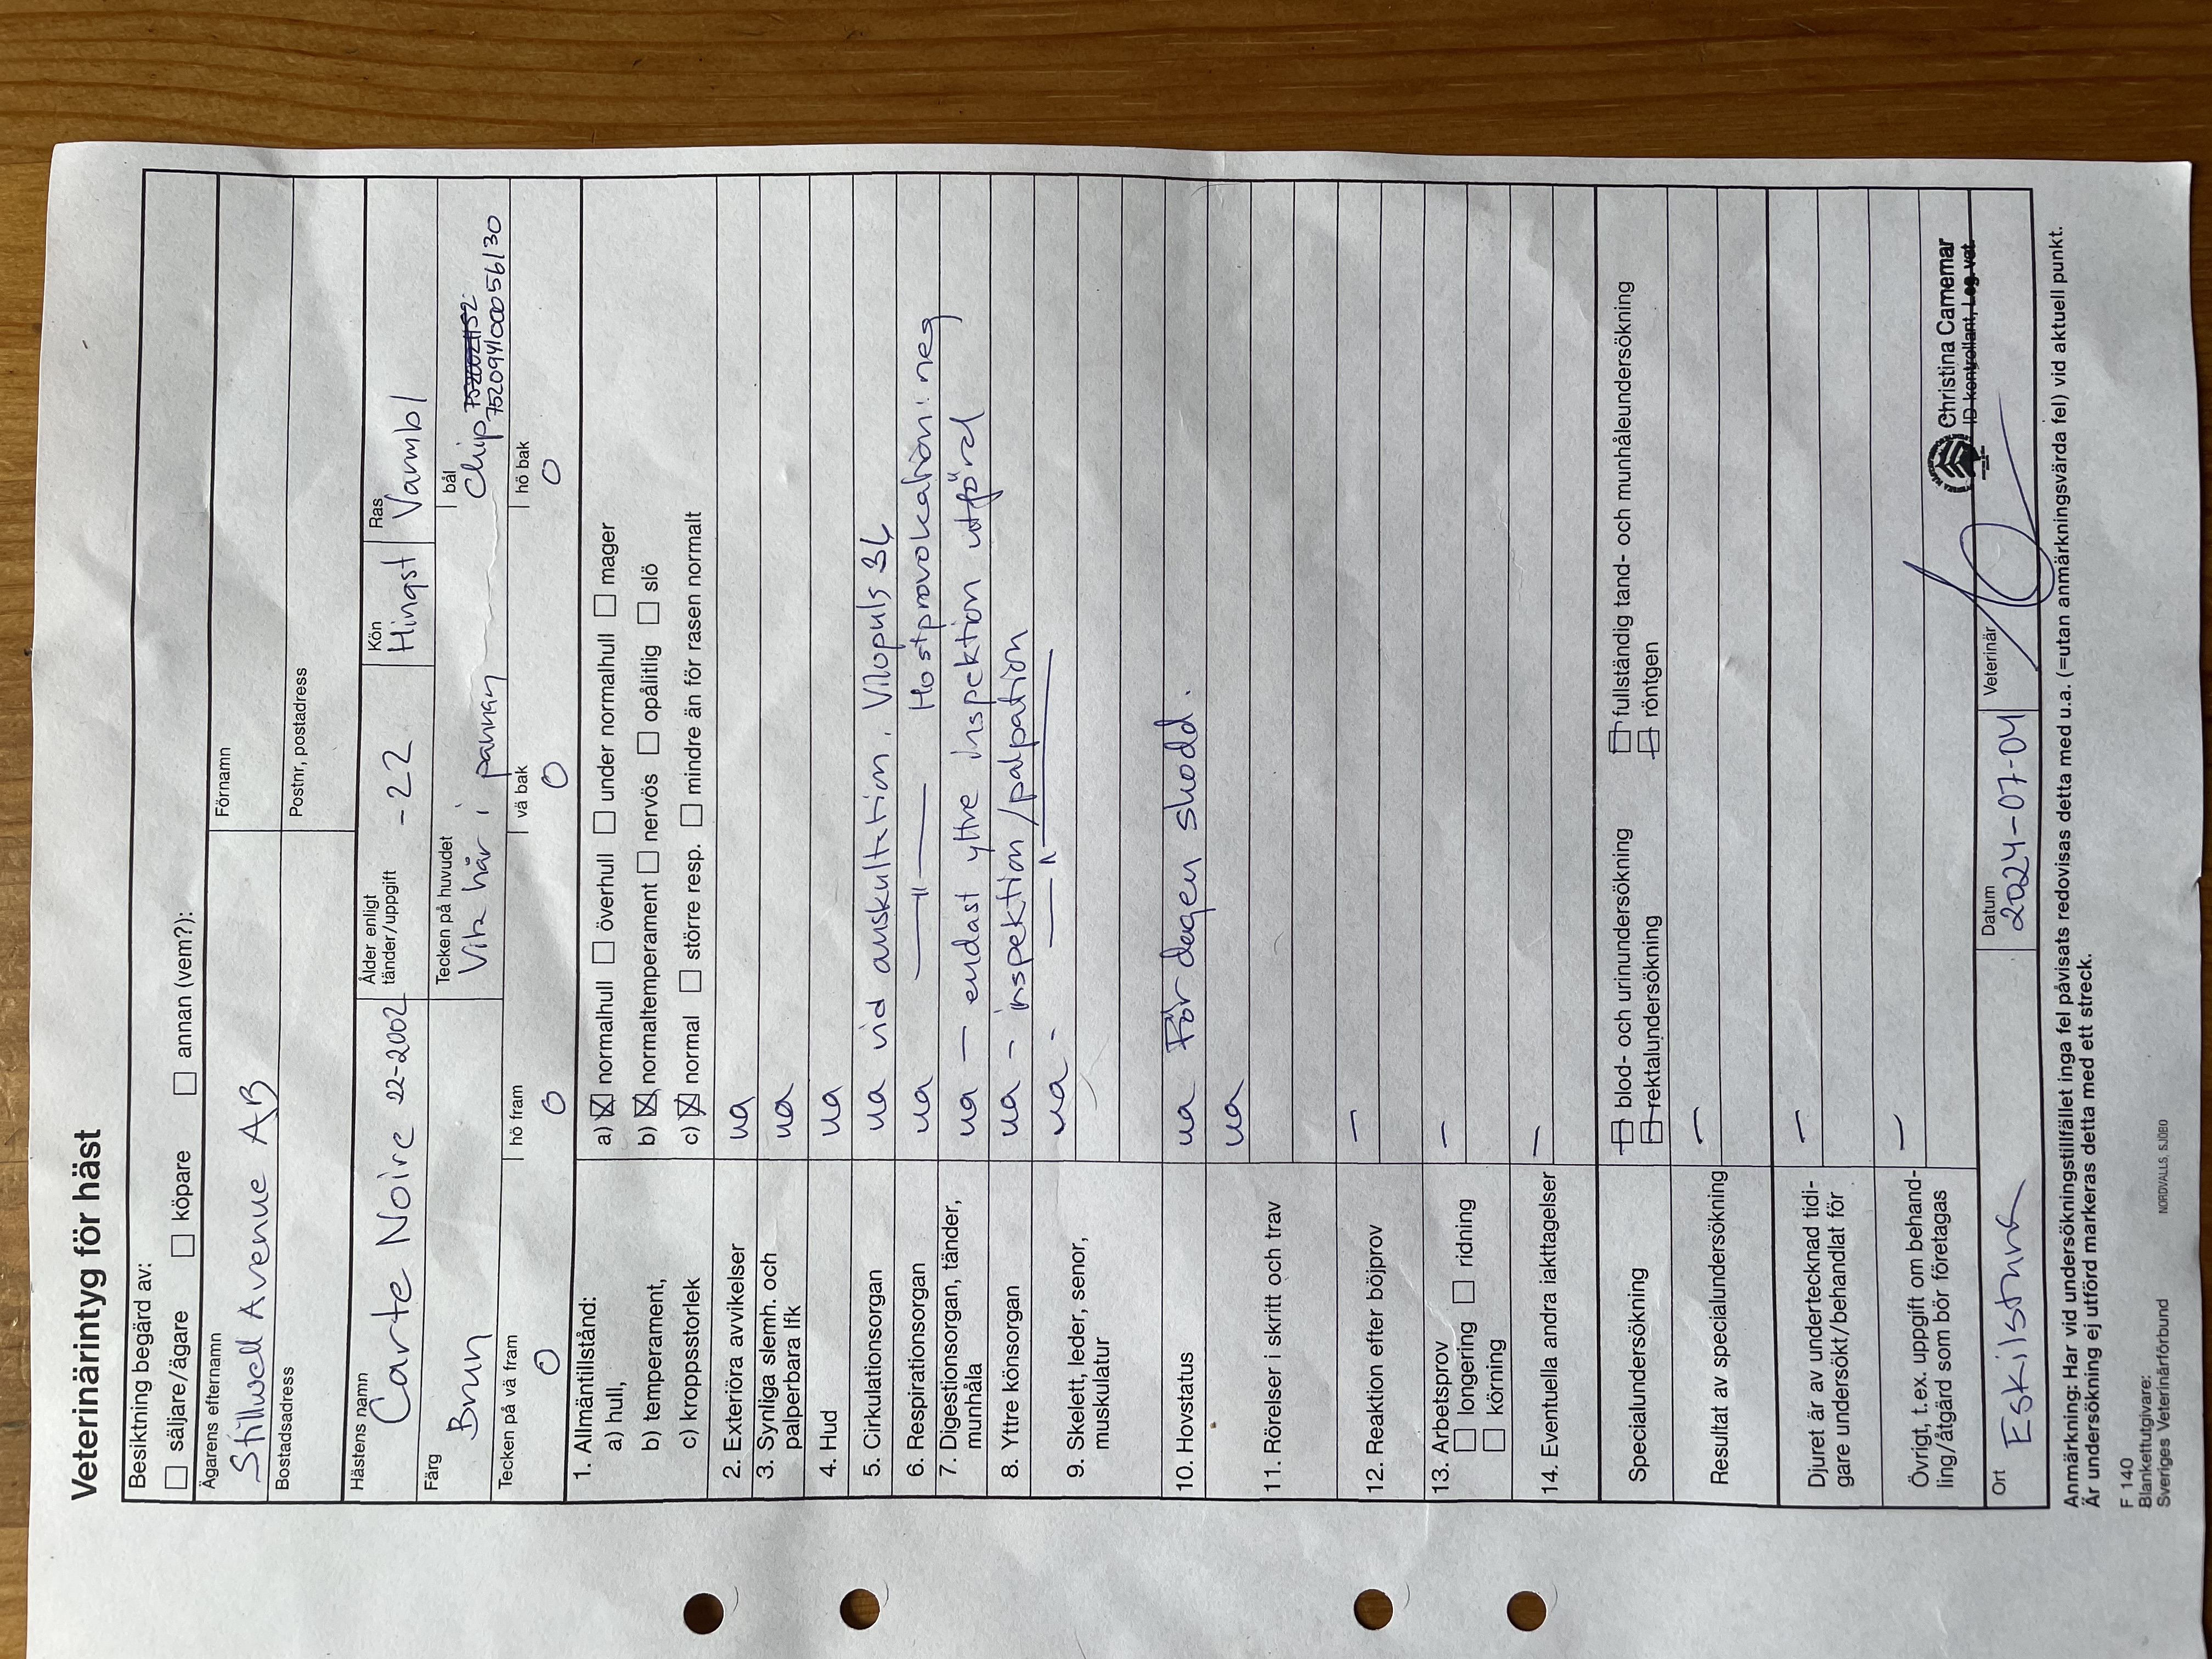 Veterinärintyg för häst
Besiktning begärd av:
säljare/ägare köpare annan (vem?):
Ägarens efternamn Förnamn
Stillwell Avenue AB
Bostadsadress Postnr, postadress
Hästens namn Ålder enligt tänder/uppgift Kön Ras
Carte Noire 22-2002 -22 Hingst Varmbl
Färg Tecken på huvudet bål
Brun Vita hår i pannan Chip
752094100056130
Tecken på vä fram hö fram vä bak hö bak
0 0 0 0
1. Allmäntillstånd:
a) hull, a) normalhull överhull under normalhull mager
b) temperament, b) normaltemperament nervös opålitlig slö
c) kroppsstorlek c) normal större resp. mindre än för rasen normalt
2. Exteriöra avvikelser ua
3. Synliga slemh. och ua
palperbara lfk
4. Hud ua
5. Cirkulationsorgan ua vid auskultation. Vilopuls 36
6. Respirationsorgan ua —"— Hostprovokation: neg
7. Digestionsorgan, tänder, ua — endast yttre inspektion utförd
munhåla
8. Yttre könsorgan ua - inspektion/palpation
9. Skelett, leder, senor, ua. —"—
muskulatur
10. Hovstatus ua För dagen skodd.
11. Rörelser i skritt och trav ua
12. Reaktion efter böjprov —
13. Arbetsprov —
longering ridning
körning
14. Eventuella andra iakttagelser —
Specialundersökning blod- och urinundersökning fullständig tand- och munhåleundersökning
rektalundersökning röntgen
Resultat av specialundersökning —
Djuret är av undertecknad tidi- —
gare undersökt/behandlat för
Övrigt, t.ex. uppgift om behand- —
ling/åtgärd som bör företagas
Christina Camemar
ID kontrollant, Leg vet.
Ort Datum Veterinär
Eskilstuna 2024-07-04
Anmärkning: Har vid undersökningstillfället inga fel påvisats redovisas detta med u.a. (=utan anmärkningsvärda fel) vid aktuell punkt.
Är undersökning ej utförd markeras detta med ett streck.
F 140
Blankettutgivare:
Sveriges Veterinärförbund NORDVALLS, SJÖBO